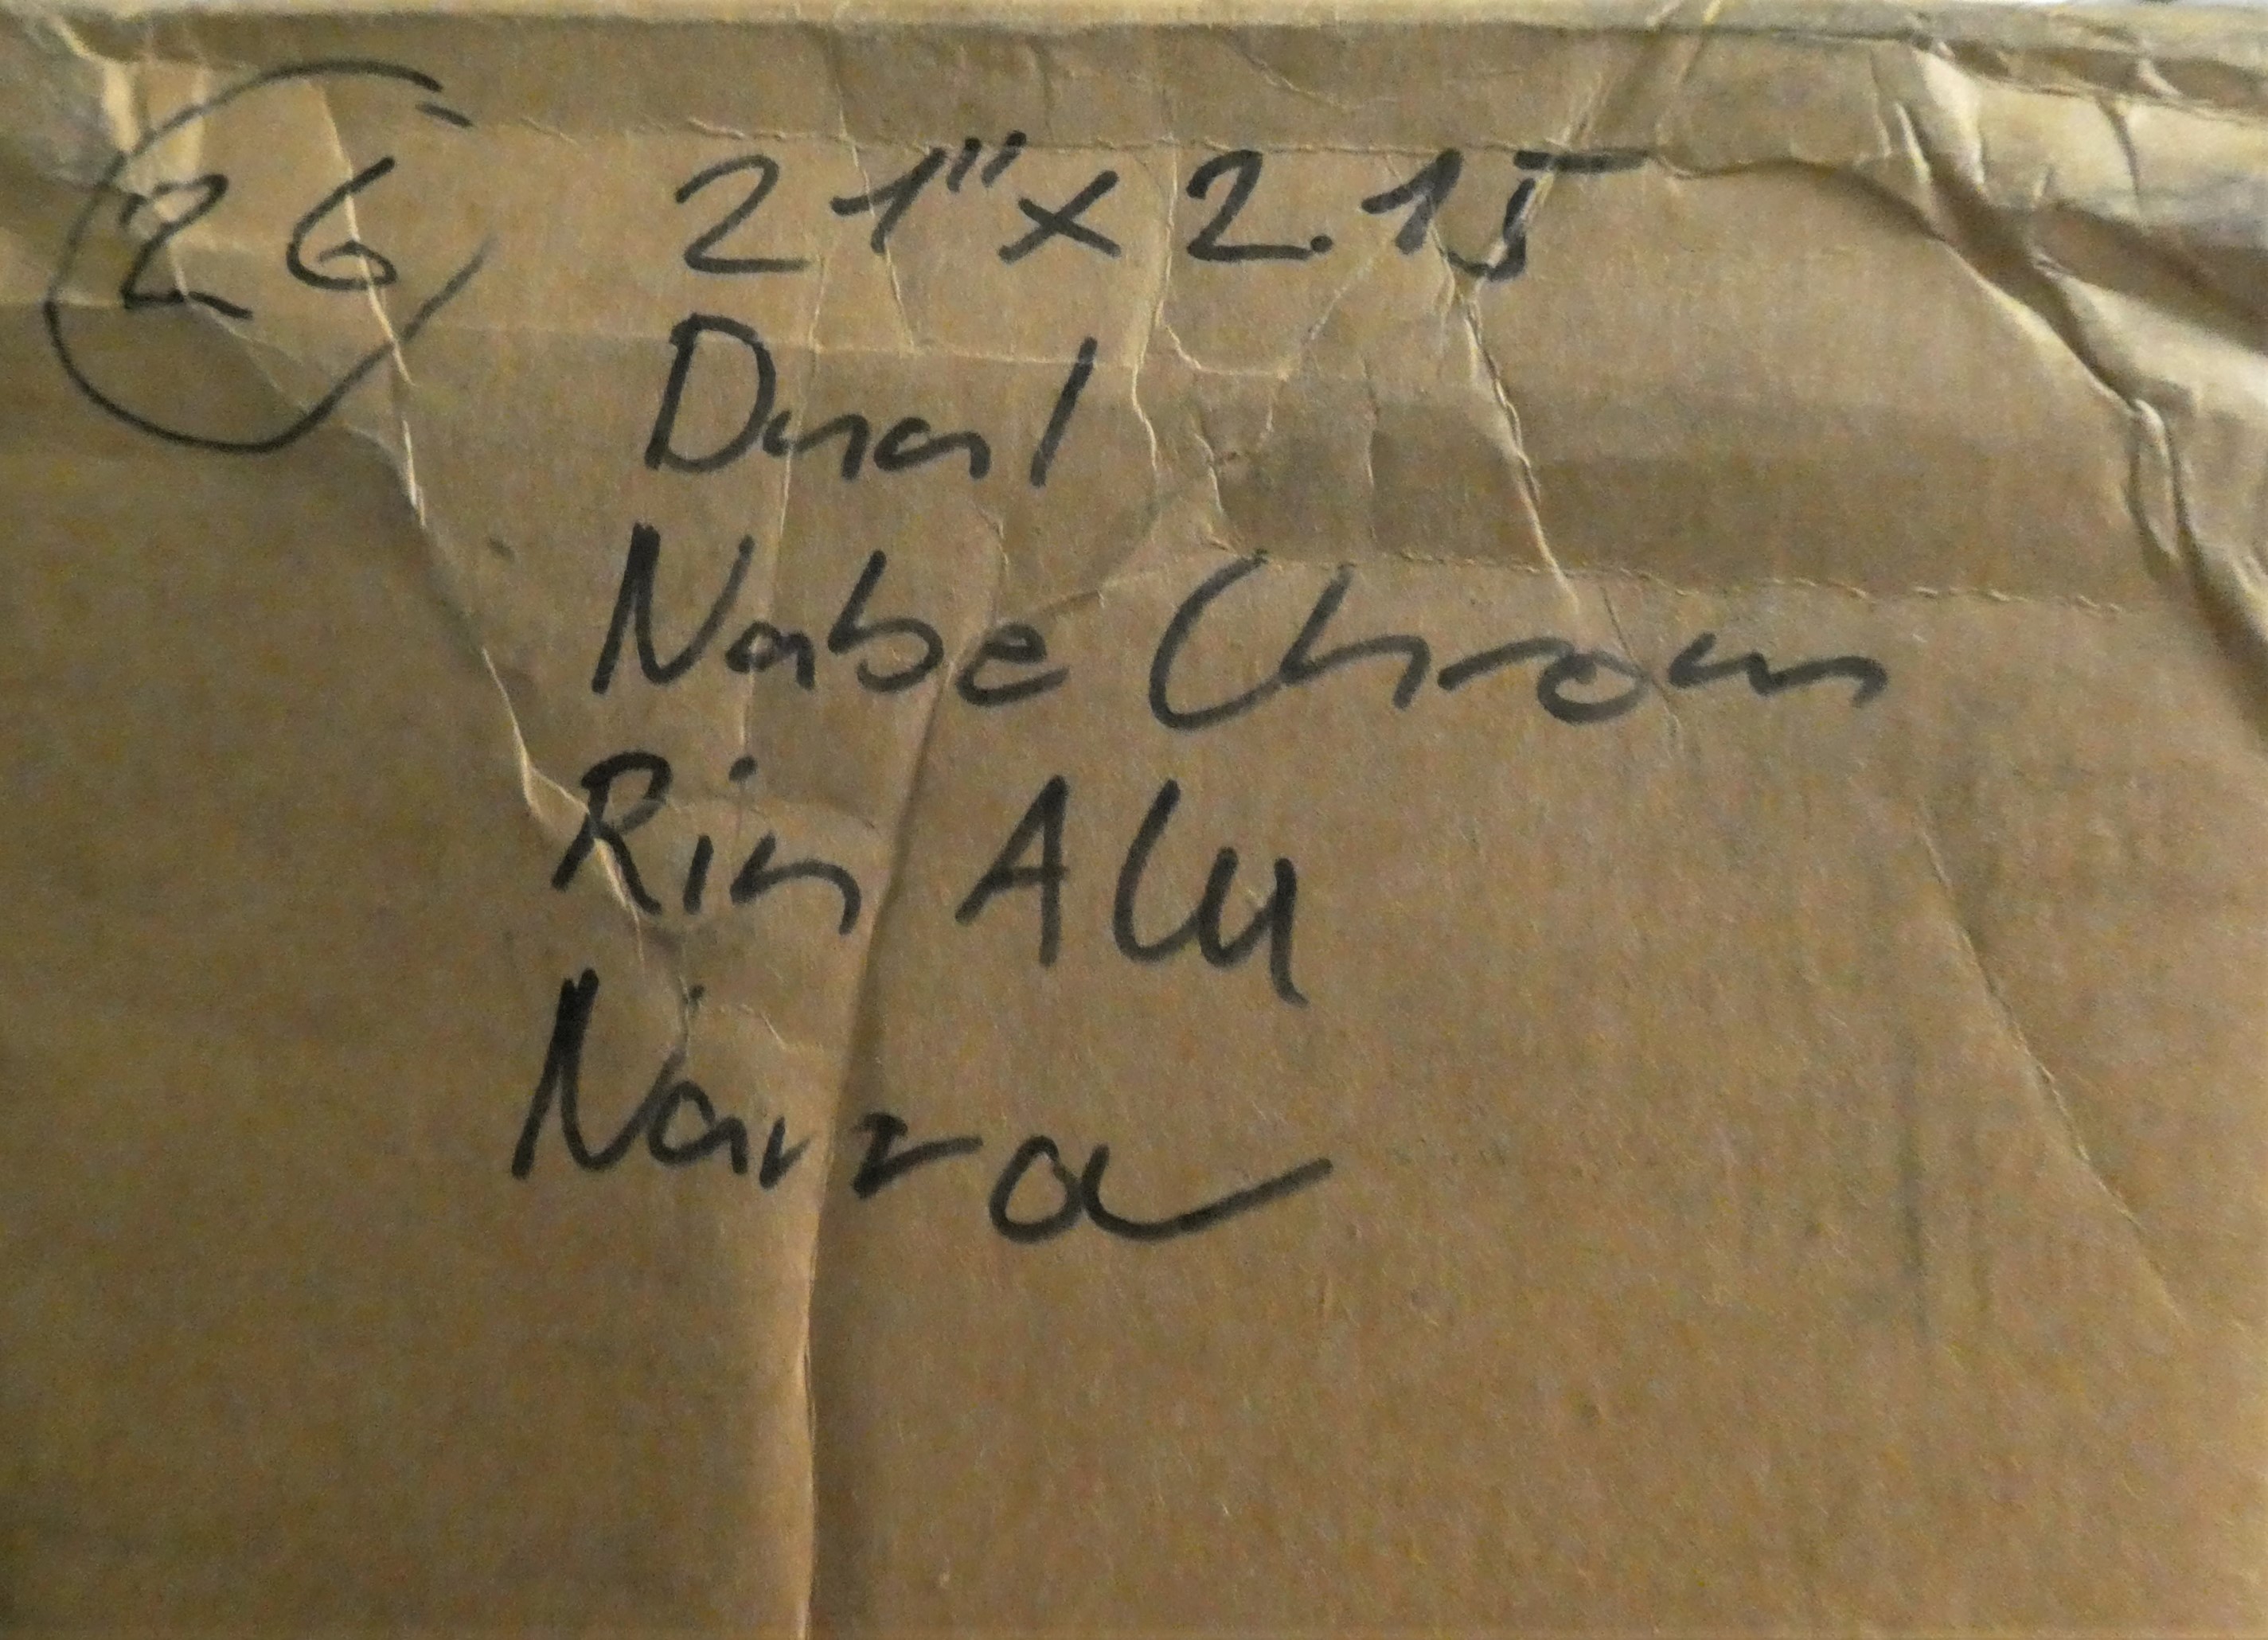 26 21" x 2.15
Dual
Nabe Chrom
Rin Alu
Narra